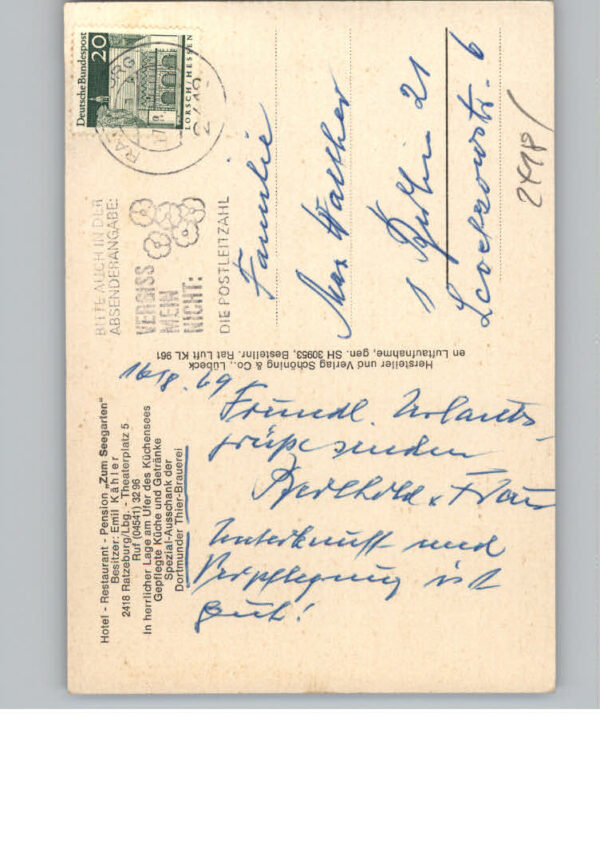 Hotel - Restaurant - Pension „Zum Seegarten“
Besitzer: Emil Kähler
2418 Ratzeburg/Lbg. - Theaterplatz 5
Ruf (04541) 32 96
In herrlicher Lage am Ufer des Küchensees
Gepflegte Küche und Getränke
Spezial-Ausschank der
Dortmunder Thier-Brauerei
16/8. 69
Freundl. Urlaubs-
grüße senden
Berthold u. Frau
Unterkunft und
Verpflegung ist
gut!
Hersteller und Verlag Schöning & Co., Lübeck
en Luftaufnahme, gen. SH 30953, Bestellnr. Rat Luft KL 961
BITTE AUCH IN DER
ABSENDERANGABE:
VERGISS
MEIN
NICHT:
DIE POSTLEITZAHL
Deutsche Bundespost
20
LORSCH/HESSEN
Familie
Max Walther
1 Berlin 21
6
2418/